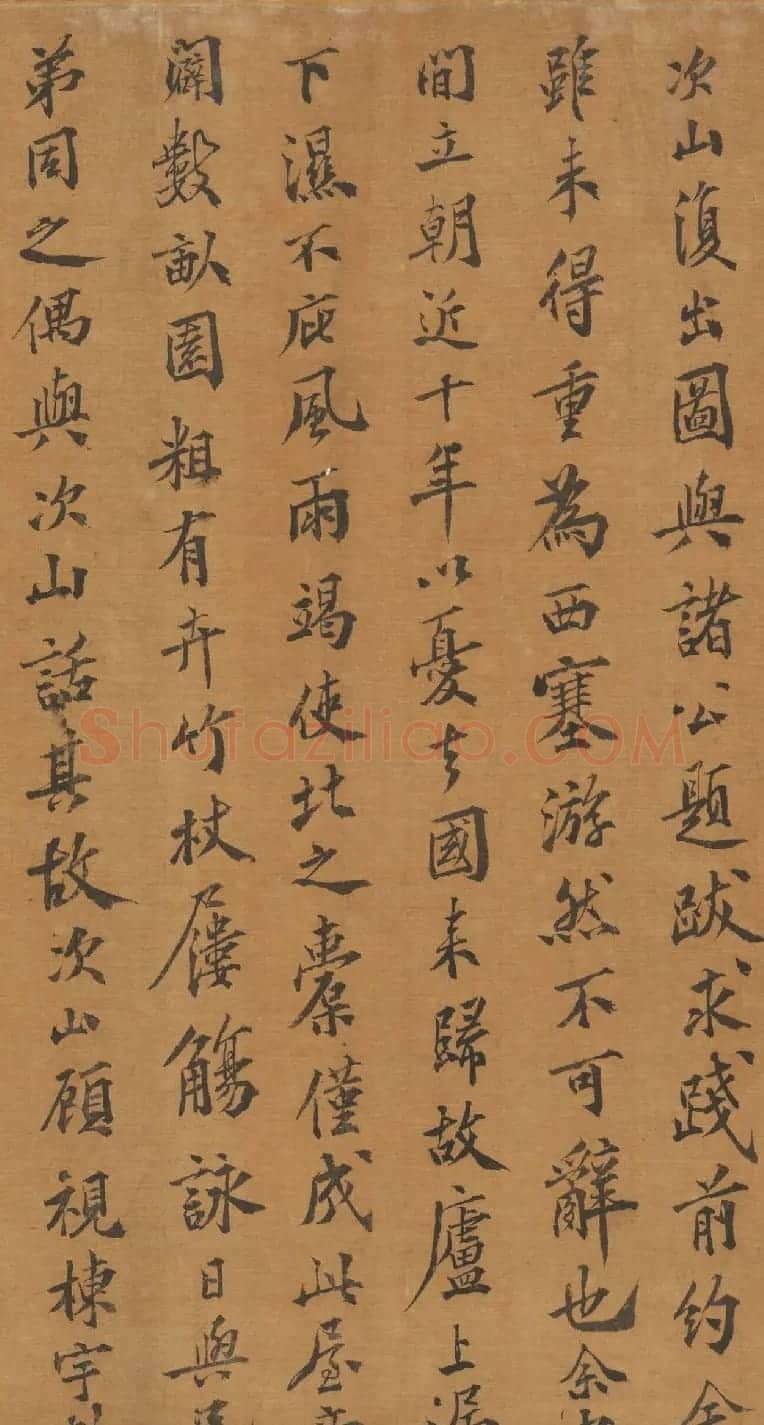 次山復出圖與諸公題跋求踐前約余
雖未得重為西塞游然不可辭也余
間立朝近十年以憂去國来歸故廬上漏
下濕不庇風雨竭使北之槖僅成此屋
闢數畝園粗有卉竹杖屨觴詠日與
弟同之偶與次山話其故次山顧視棟宇
Shufaziliao.COM